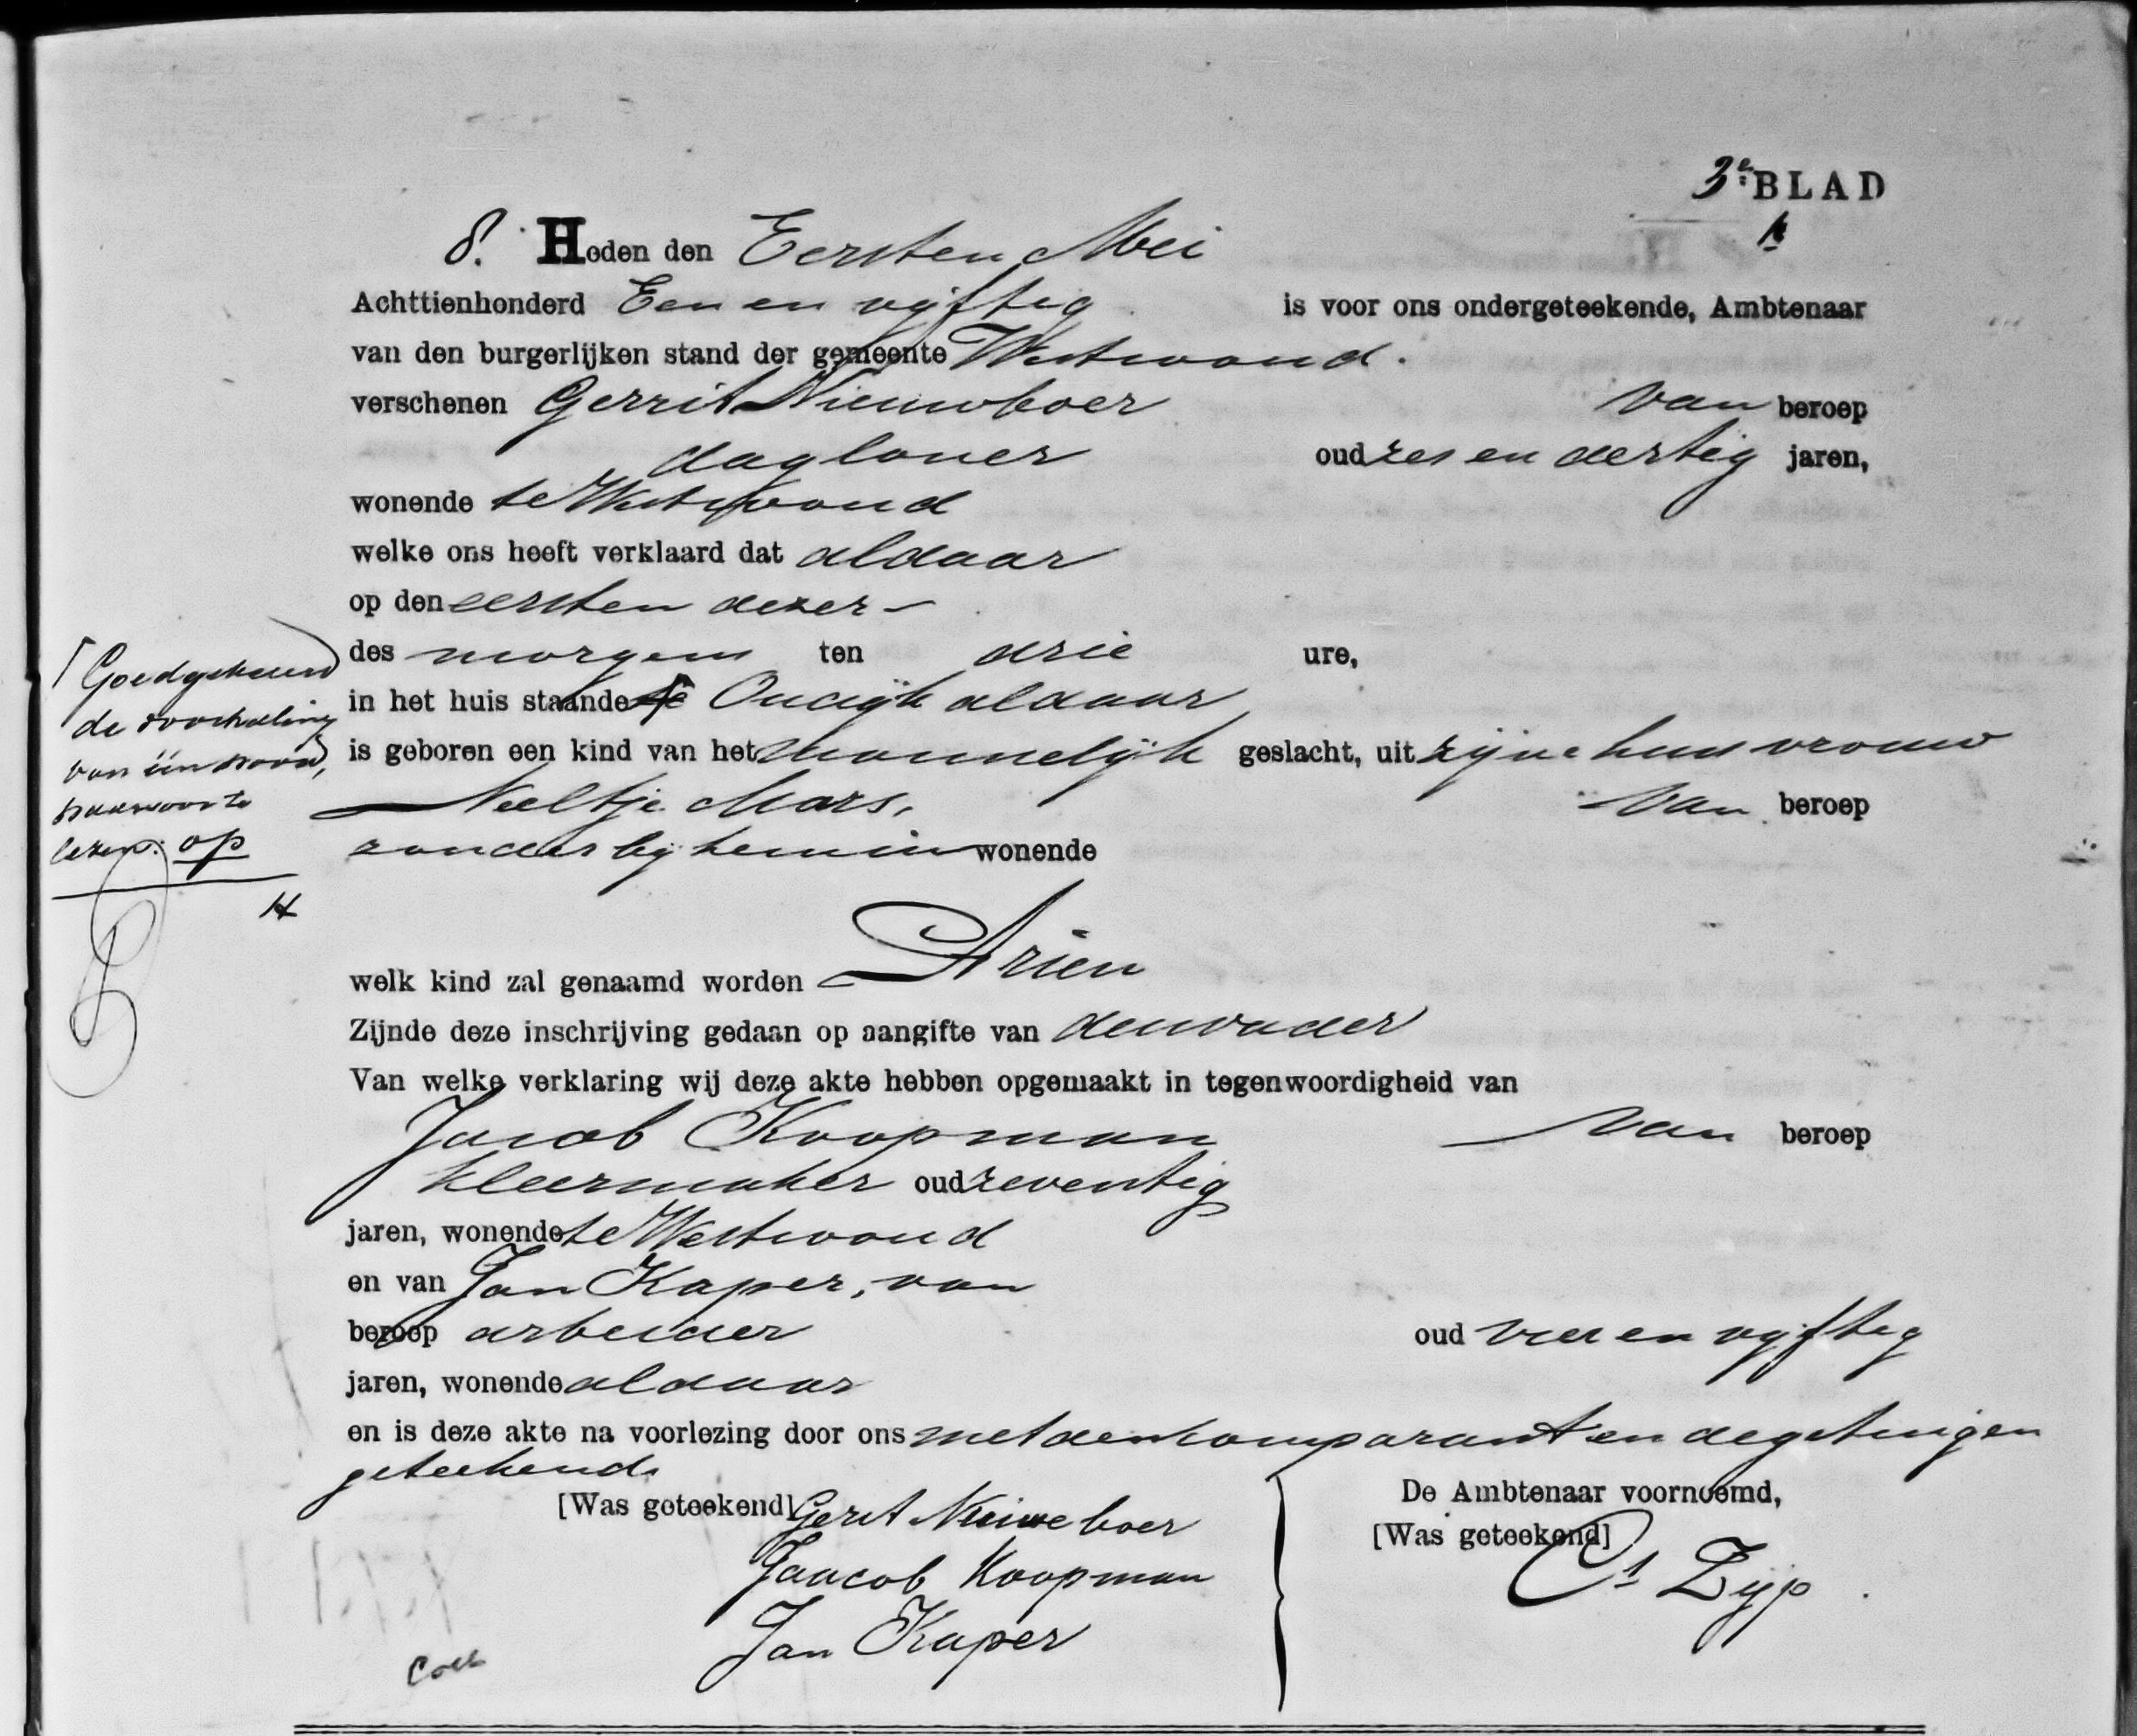 3e BLAD
8. Heden den Eersten Mei
Achttienhonderd Een en vijftig is voor ons ondergeteekende, Ambtenaar
van den burgerlijken stand der gemeente Westwoud.
verschenen Gerrit Nieuwboer van beroep
dagloner oud zes en dertig jaren,
wonende te Westwoud
welke ons heeft verklaard dat aldaar
op den eersten dezer
des morgens ten drie ure,
in het huis staande Oudijk aldaar
is geboren een kind van het mannelijk geslacht, uit zijne huisvrouw
Neeltje Mars, van beroep
zonder bij hem in wonende
Goedgekeurd
de doorhaling
van één woord,
waarvoor te
lezen: op
welk kind zal genaamd worden Arien
Zijnde deze inschrijving gedaan op aangifte van den vader
Van welke verklaring wij deze akte hebben opgemaakt in tegenwoordigheid van
Jacob Koopman van beroep
kleermaker oud zeventig
jaren, wonende te Westwoud
en van Jan Kaper, van
beroep arbeider oud vier en vijftig
jaren, wonende aldaar
en is deze akte na voorlezing door ons met den komparant en de getuigen
geteekend.
[Was geteekend] Gerit Nieuweboer
Jaacob Koopman
Jan Kaper
De Ambtenaar voornoemd,
[Was geteekend]
Cs Zijp